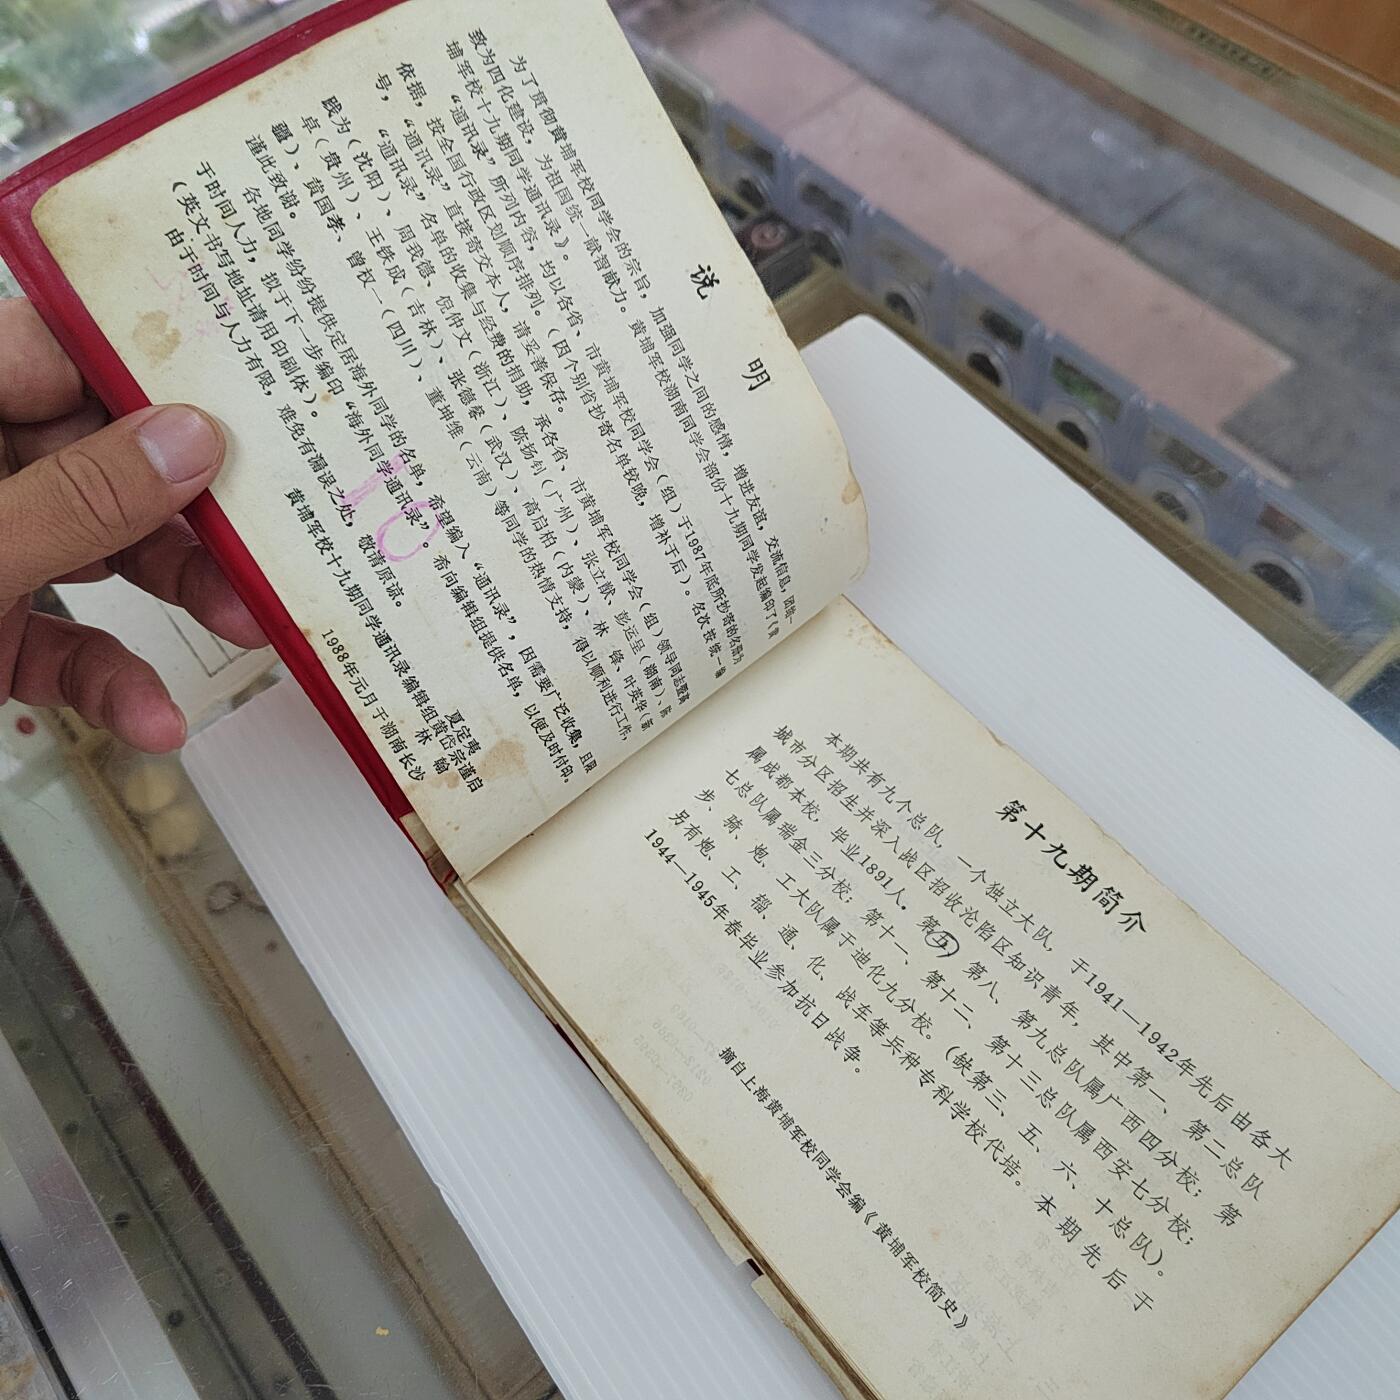 说明
为了贯彻黄埔军校同学会的宗旨，加强同学之间的感情，增进友谊，交流信息，团结一
致为四化建设，为祖国统一献智献力。黄埔军校湖南同学会部份十九期同学发起编印了《黄
埔军校十九期同学通讯录》。
“通讯录”所列内容，均以各省、市黄埔军校同学会（组）于1987年底所抄寄的名册为
依据，按全国行政区划顺序排列。（因个别省抄寄名单较晚，增补于后）。名次按统一编
号，“通讯录”直接寄交本人，请妥善保存。
“通讯录”名单的收集与经费的捐助，承各省、市黄埔军校同学会（组）领导同志暨高
践为（沈阳）、周我德、倪仲文（浙江）、陈扬钊（广州）、张立猷、彭运呈（湖南）、陈
卓（贵州）、王铁成（吉林）、张德修（武汉）、高启柏（内蒙）、林锋、叶英华（新
疆）、黄国孝、曾权一（四川）、董坤维（云南）等同学的热情支持，得以顺利进行工作，
谨此致谢。
各地同学纷纷提供定居海外同学的名单，希望编入“通讯录”，因需要广泛收集，且限
于时间人力，拟于下一步编印“海外同学通讯录”。希向编辑组提供名单，以便及时付印。
（英文书写地址请用印刷体）。
由于时间与人力有限，难免有漏误之处，敬请原谅。
夏定夷
黄埔军校十九期同学通讯录编辑组黄岱宗谨启
林翰
1988年元月于湖南长沙
10
第十九期简介
本期共有九个总队，一个独立大队，于1941—1942年先后由各大
城市分区招生并深入战区招收沦陷区知识青年，其中第一、第二总队
属成都本校，毕业1891人。第五、第八、第九总队属广西四分校；第
七总队属瑞金三分校；第十一、第十二、第十三总队属西安七分校；
步、骑、炮、工大队属于迪化九分校。（缺第三、五、六、十总队）。
另有炮、工、辎、通、化、战车等兵种专科学校代培。本期先后于
1944—1945年春毕业参加抗日战争。
摘自上海黄埔军校同学会编《黄埔军校简史》